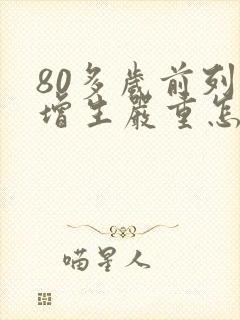 80多岁前列
增生严重怎
喵星人